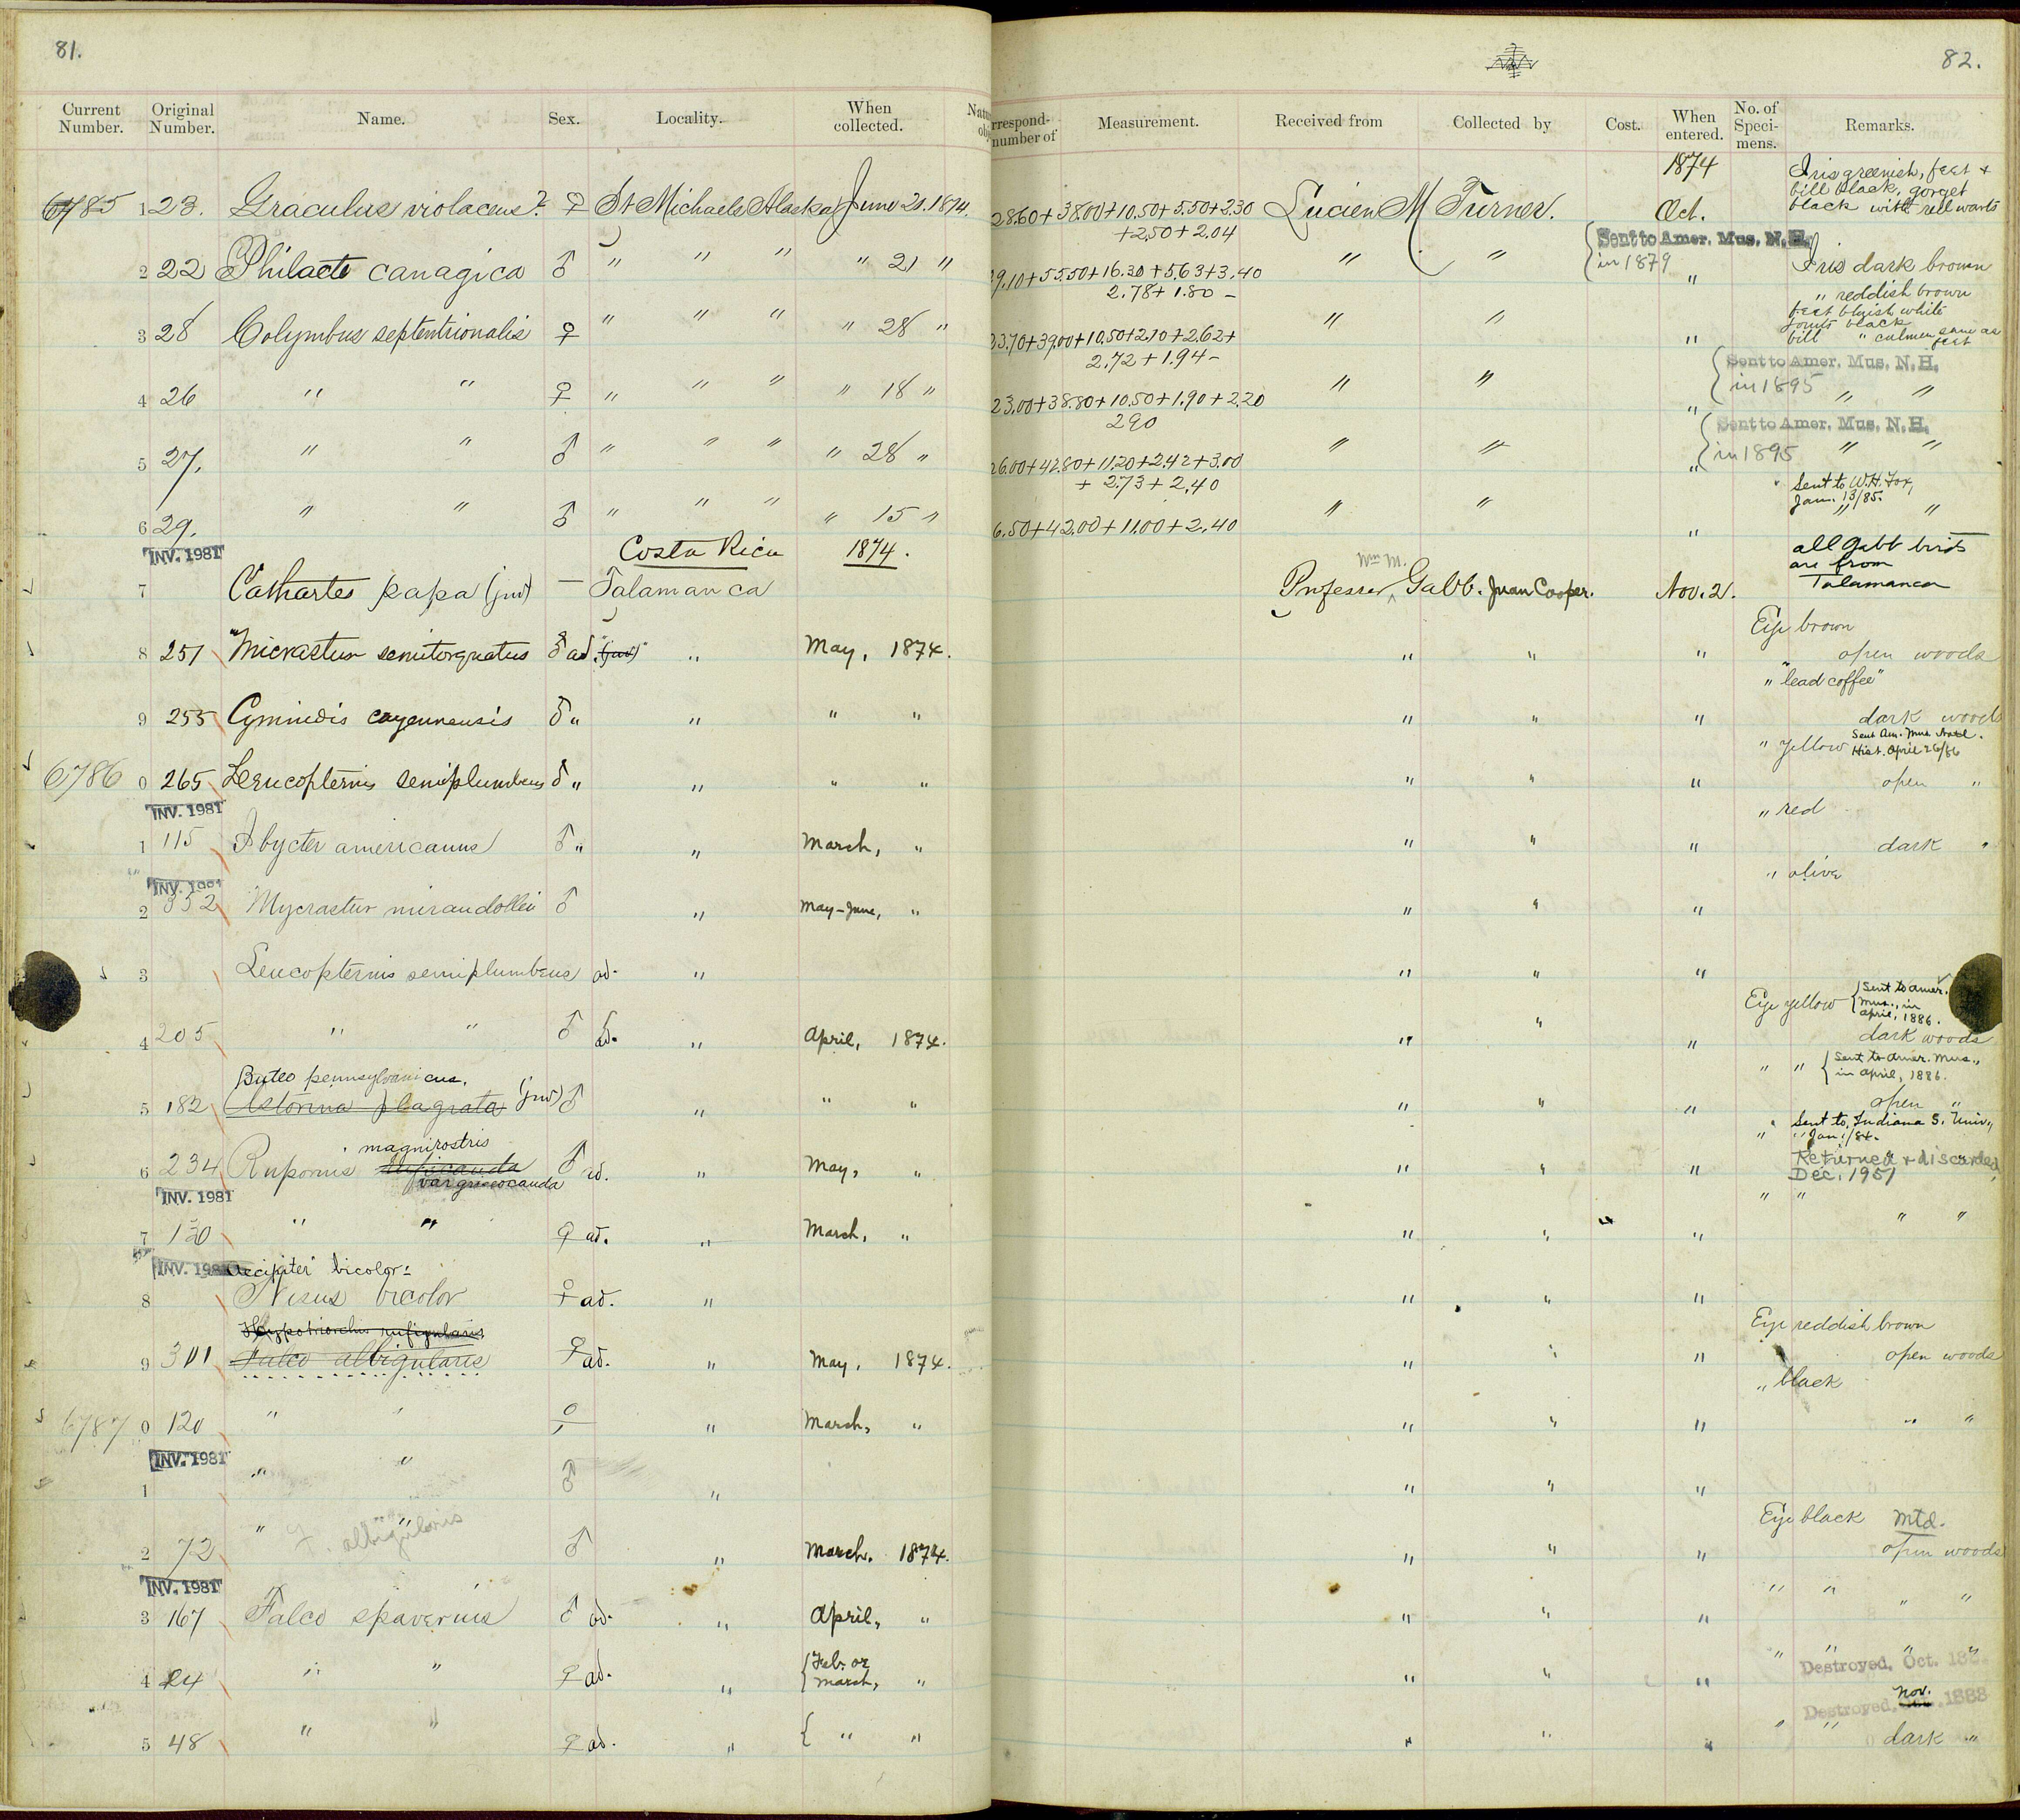 81.
82.
Current Number. Original Number. Name. Sex. Locality. When collected. Natu
rrespond- number of Measurement. Received from Collected by Cost. When entered. No. of Speci- mens. Remarks.
6785 1 23. Graculus violaceus? ♀ St Michaels Alaska June 21. 1874. 28.60+38.00+10.50+5.50+2.30 +2.50+2.04 Lucien M Turner. 1874 Oct. Iris greenish, feet + bill black, gorget black with red warts
2 22 Philacte canagica ♂ " " " " 21 " 9.10+55.50+16.30+5.63+3.40 2.78+1.80 - " " { Sent to Amer. Mus. N.H. in 1879 " Iris dark brown
3 28 Colymbus septentrionalis ♀ " " " " 28 " 3.70+39.00+10.50+2.10+2.62+ 2.72+1.94- " " " " reddish brown feet bluish white joints black bill " culmen same as feet
4 26 " " ♀ " " " " 18 " 23.00+38.80+10.50+1.90+2.20 290 " " " { Sent to Amer. Mus. N.H. in 1895 " "
5 27. " " ♂ " " " " 28 " 26.00+42.80+11.20+2.42+3.00 + 2.73+2.40 " " " { Sent to Amer. Mus. N.H. in 1895 " "
6 29. " " ♂ " " " " 15 " 6.50+42.00+11.00+2.40 " " " Sent to W.H. Fox, Jan. 13/85. " "
INV. 1981 Costa Rica 1874.
7 Cathartes papa (juv) — Talamanca Professor Wm M. Gabb. Juan Cooper. Nov. 2. all Gabb birds are from Talamanca
8 251 "Micrastur semitorquatus ♂ ad. "(juv)" " May, 1874. " " " Eye brown open woods
9 255 Cymindis cayennensis ♂ " " " " " " " " "lead coffee" dark woods
6786 0 265 Leucopternis semiplumbeus ♂ " " " " " " " " yellow Sent Am. Mus. Natl. Hist. April 26/86 open "
INV. 1981
1 115 Ibycter americanus ♂ " " March, " " " " " red dark "
INV. 1981
2 352 Mycrastur mirandollei ♂ " May-June, " " " " " olive
3 Leucopternis semiplumbeus ad. " " " "
4 205 " " ♂ ad. " April, 1874. " " " Eye yellow { Sent to Amer. Mus., in April, 1886. dark woods
Buteo pennsylvanicus.
5 182 Asturina plagiata (juv) ♂ " " " " " " " " { Sent to Amer. Mus., in April, 1886. open "
magnirostris
6 234 Rupornis ruficauda ♂ ad. " May, " " " " " Sent to Indiana S. Univ., " Jan./84. Returned + discarded, Dec. 1951
INV. 1981 var griseocauda
7 130 " " ♀ ad. " March, " " " " " " " "
INV. 1981 Accipiter bicolor:
8 Nisus bicolor ♀ ad. " " " "
Hypotriorchis rufigularis
9 301 Falco albigularis ♀ ad. " May, 1874. " " " Eye reddish brown open woods
6787 0 120 " " ♀ " March, " " " " " black " "
INV. 1981
1 " " ♂ " " " "
2 72 " " F. albigularis ♂ " March. 1874. " " " Eye black Mtd. open woods
INV. 1981
3 167 Falco sparverius ♂ ad. " April, " " " " " " " "
4 24 " " ♀ ad. " { Feb. or March, " " " " " " " " Destroyed, Oct.
5 48 " " ♀ ad. " { " " " " " " " dark " Destroyed, Nov. 1888